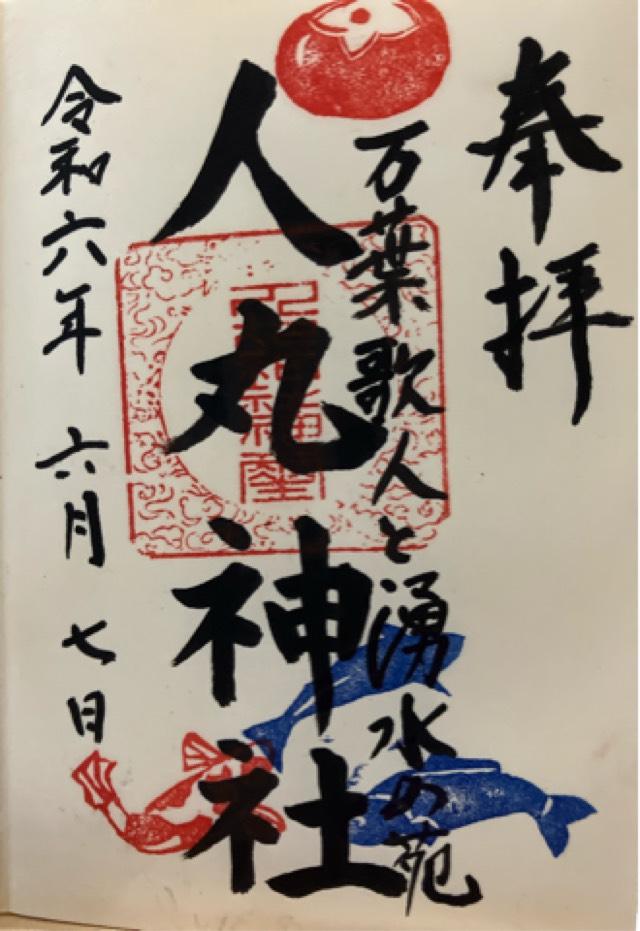 奉拝
万葉歌人と湧水の苑
人丸神社
令和六年 六月 七日